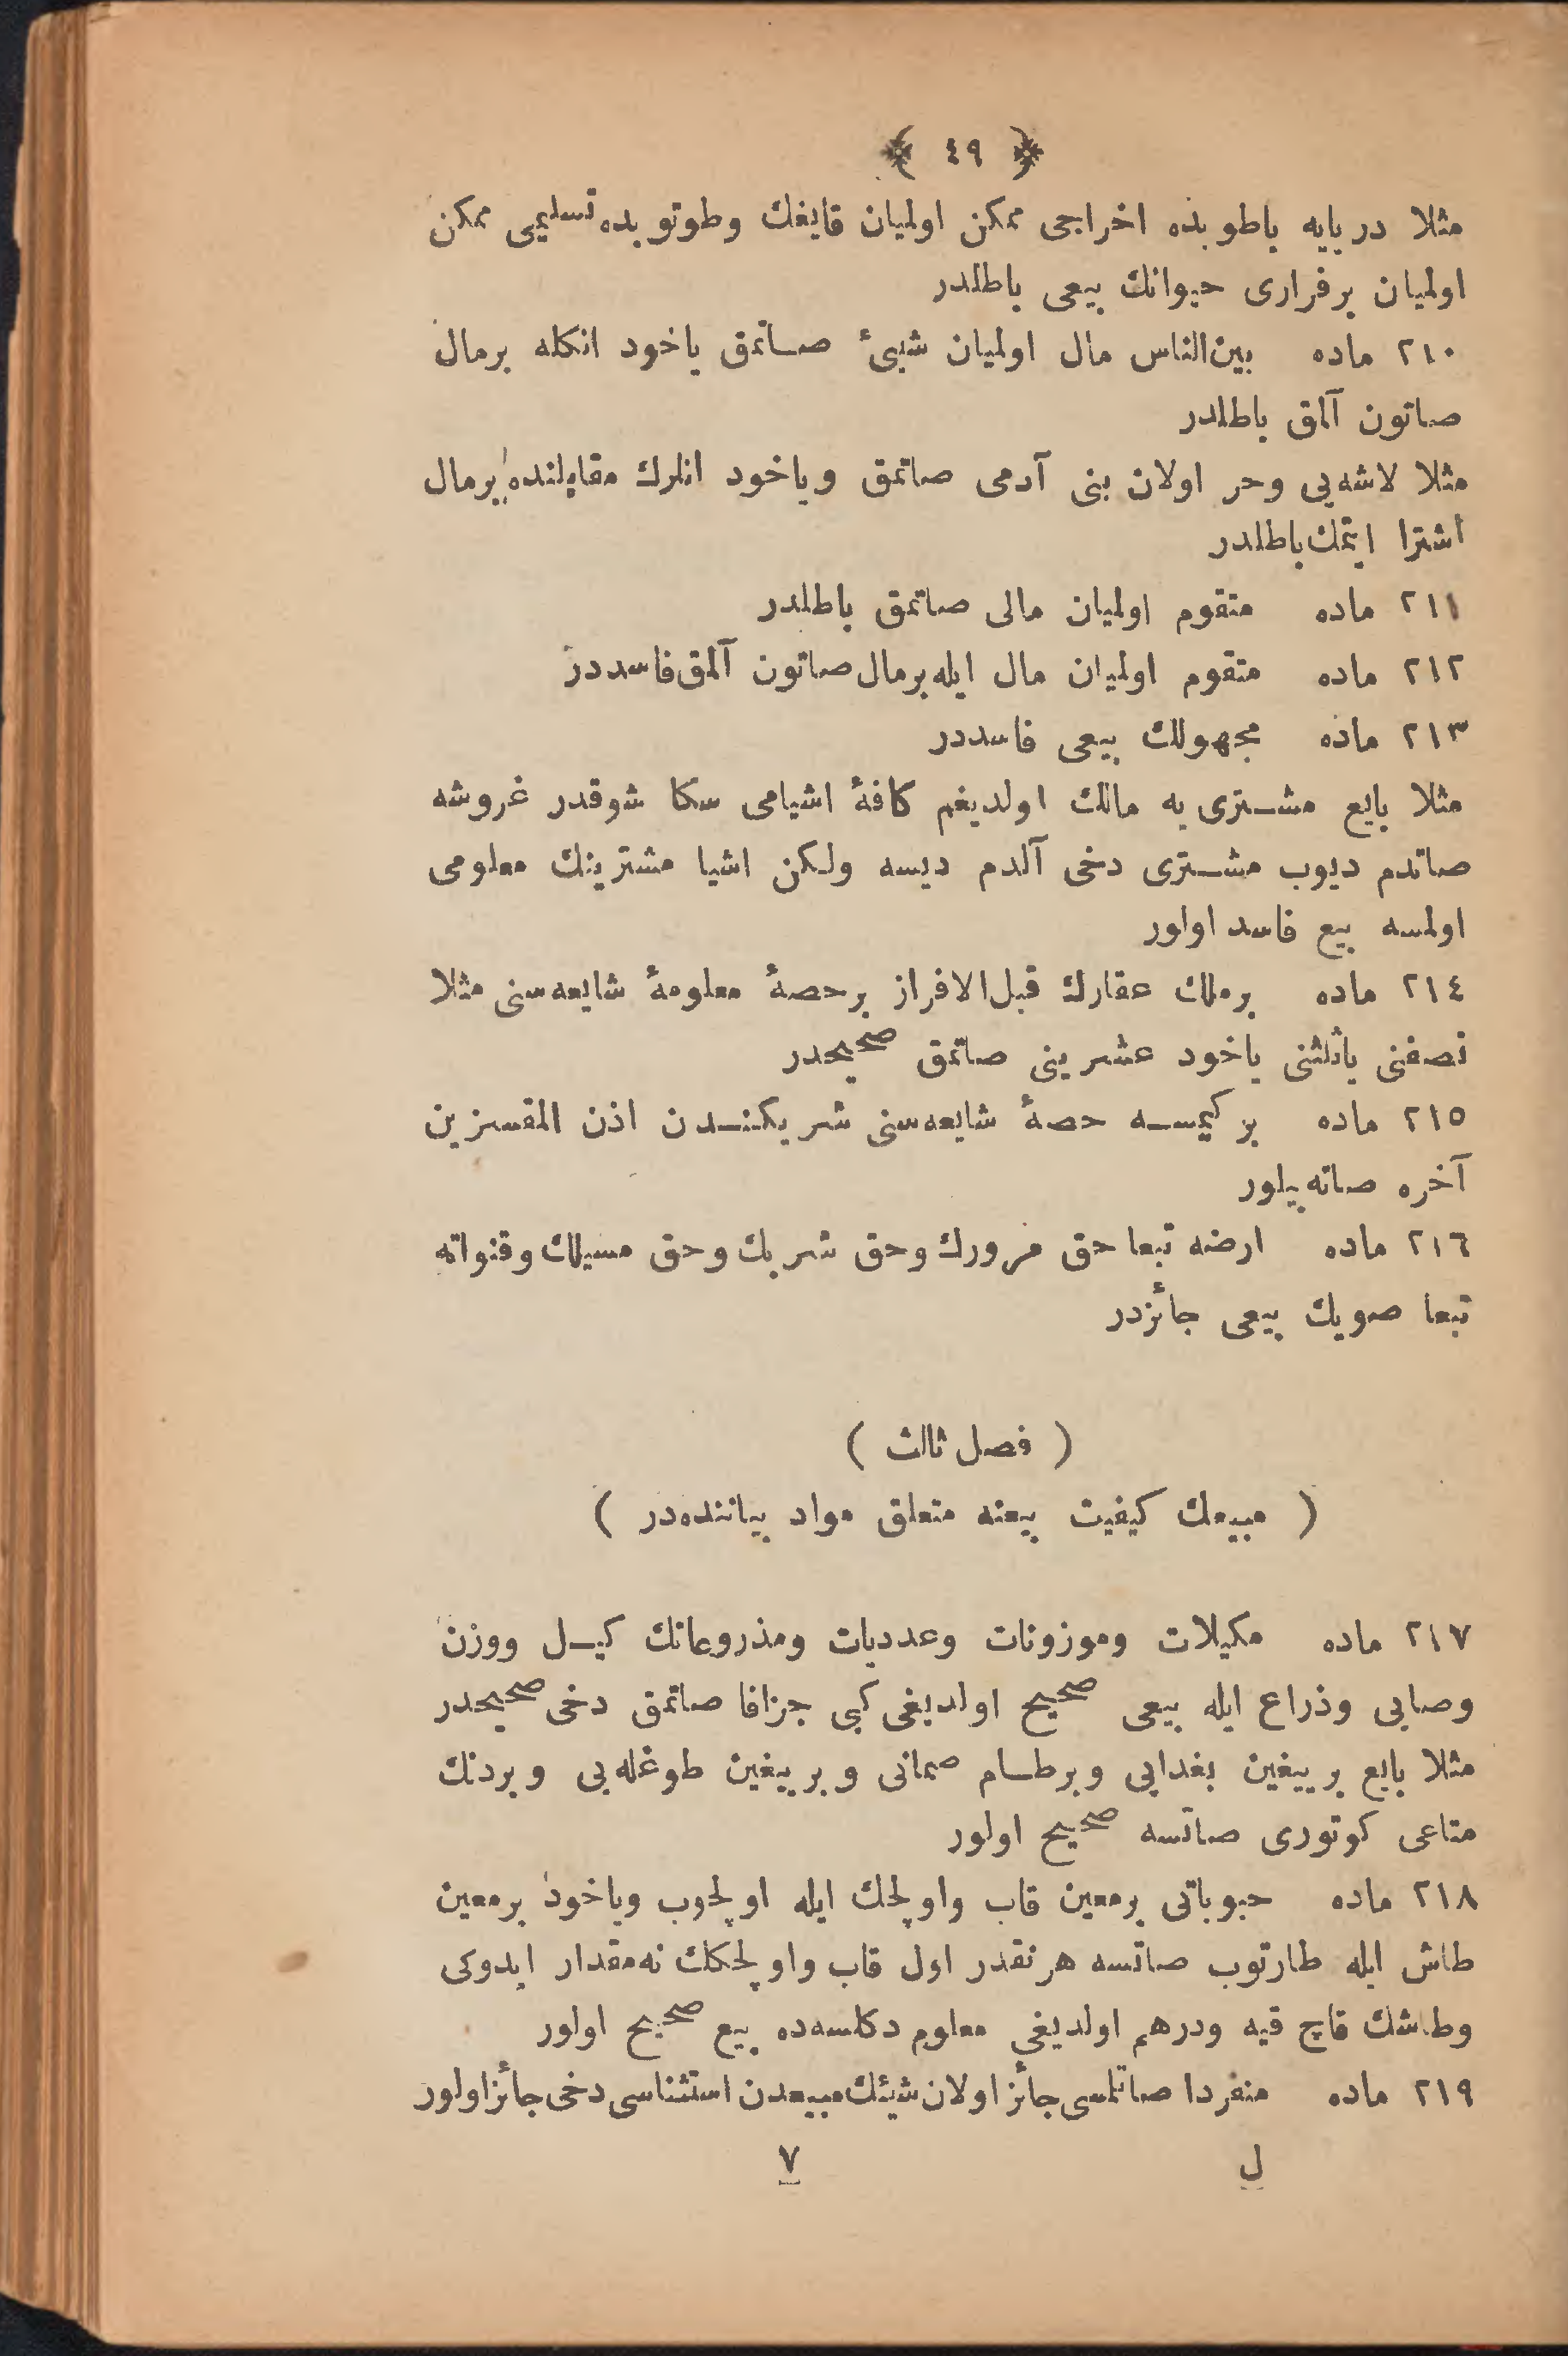 ﴿ ٤٩ ﴾
مثلا دریایه باطوبده اخراجی ممکن اولمیان قایغك وطوتوبده تسلیمی ممکن
اولمیان برفراری حیوانك بیعی باطلدر
٢١٠ ماده بین‌الناس مال اولمیان شیئ صاتمق یاخود انکله برمال
صاتون آلمق باطلدر
مثلا لاشه‌یی وحر اولان بنی آدمی صاتمق ویاخود انلرك مقابلنده برمال
اشترا ایتمك باطلدر
٢١١ ماده متقوم اولمیان مالی صاتمق باطلدر
٢١٢ ماده متقوم اولمیان مال ایله برمال صاتون آلمق فاسددر
٢١٣ ماده مجهولك بیعی فاسددر
مثلا بایع مشتری‌یه مالك اولدیغم کافهٔ اشیامی سکا شوقدر غروشه
صاتدم دیوب مشتری دخی آلدم دیسه ولکن اشیا مشترینك معلومی
اولمسه بیع فاسد اولور
٢١٤ ماده برملك عقارك قبل‌الافراز برحصهٔ معلومهٔ شایعه‌سنی مثلا
نصفنی یاثلثنی یاخود عشرینی صاتمق صحیحدر
٢١٥ ماده بر کیمسه حصهٔ شایعه‌سنی شریکندن اذن المقسزین
آخره صاته‌بیلور
٢١٦ ماده ارضه تبعا حق مرورك وحق شربك وحق مسیلك وقنواته
تبعا صویك بیعی جائزدر
( فصل ثالث )
( مبیعك کیفیت بیعنه متعلق مواد بیاننده‌در )
٢١٧ ماده مکیلات وموزونات وعددیات ومذروعاتك کیل ووزن
وصایی وذراع ایله بیعی صحیح اولدیغی کبی جزافا صاتمق دخی صحیحدر
مثلا بایع بریيغین بغدایی وبرطام صمانی وبریيغین طوغله‌یی وبردنك
متاعی کوتوری صاتسه صحیح اولور
٢١٨ ماده حبوباتی برمعین قاب واولچك ایله اولچوب ویاخود برمعین
طاش ایله طارتوب صاتسه هرنقدر اول قاب واولچکك نه‌مقدار ایدوکی
وطاشك قاچ قیه ودرهم اولدیغی معلوم دکلسه‌ده بیع صحیح اولور
٢١٩ ماده منفردا صاتلمسی جائز اولان شیئك مبیعدن استثناسی دخی جائز اولور
ل ٧